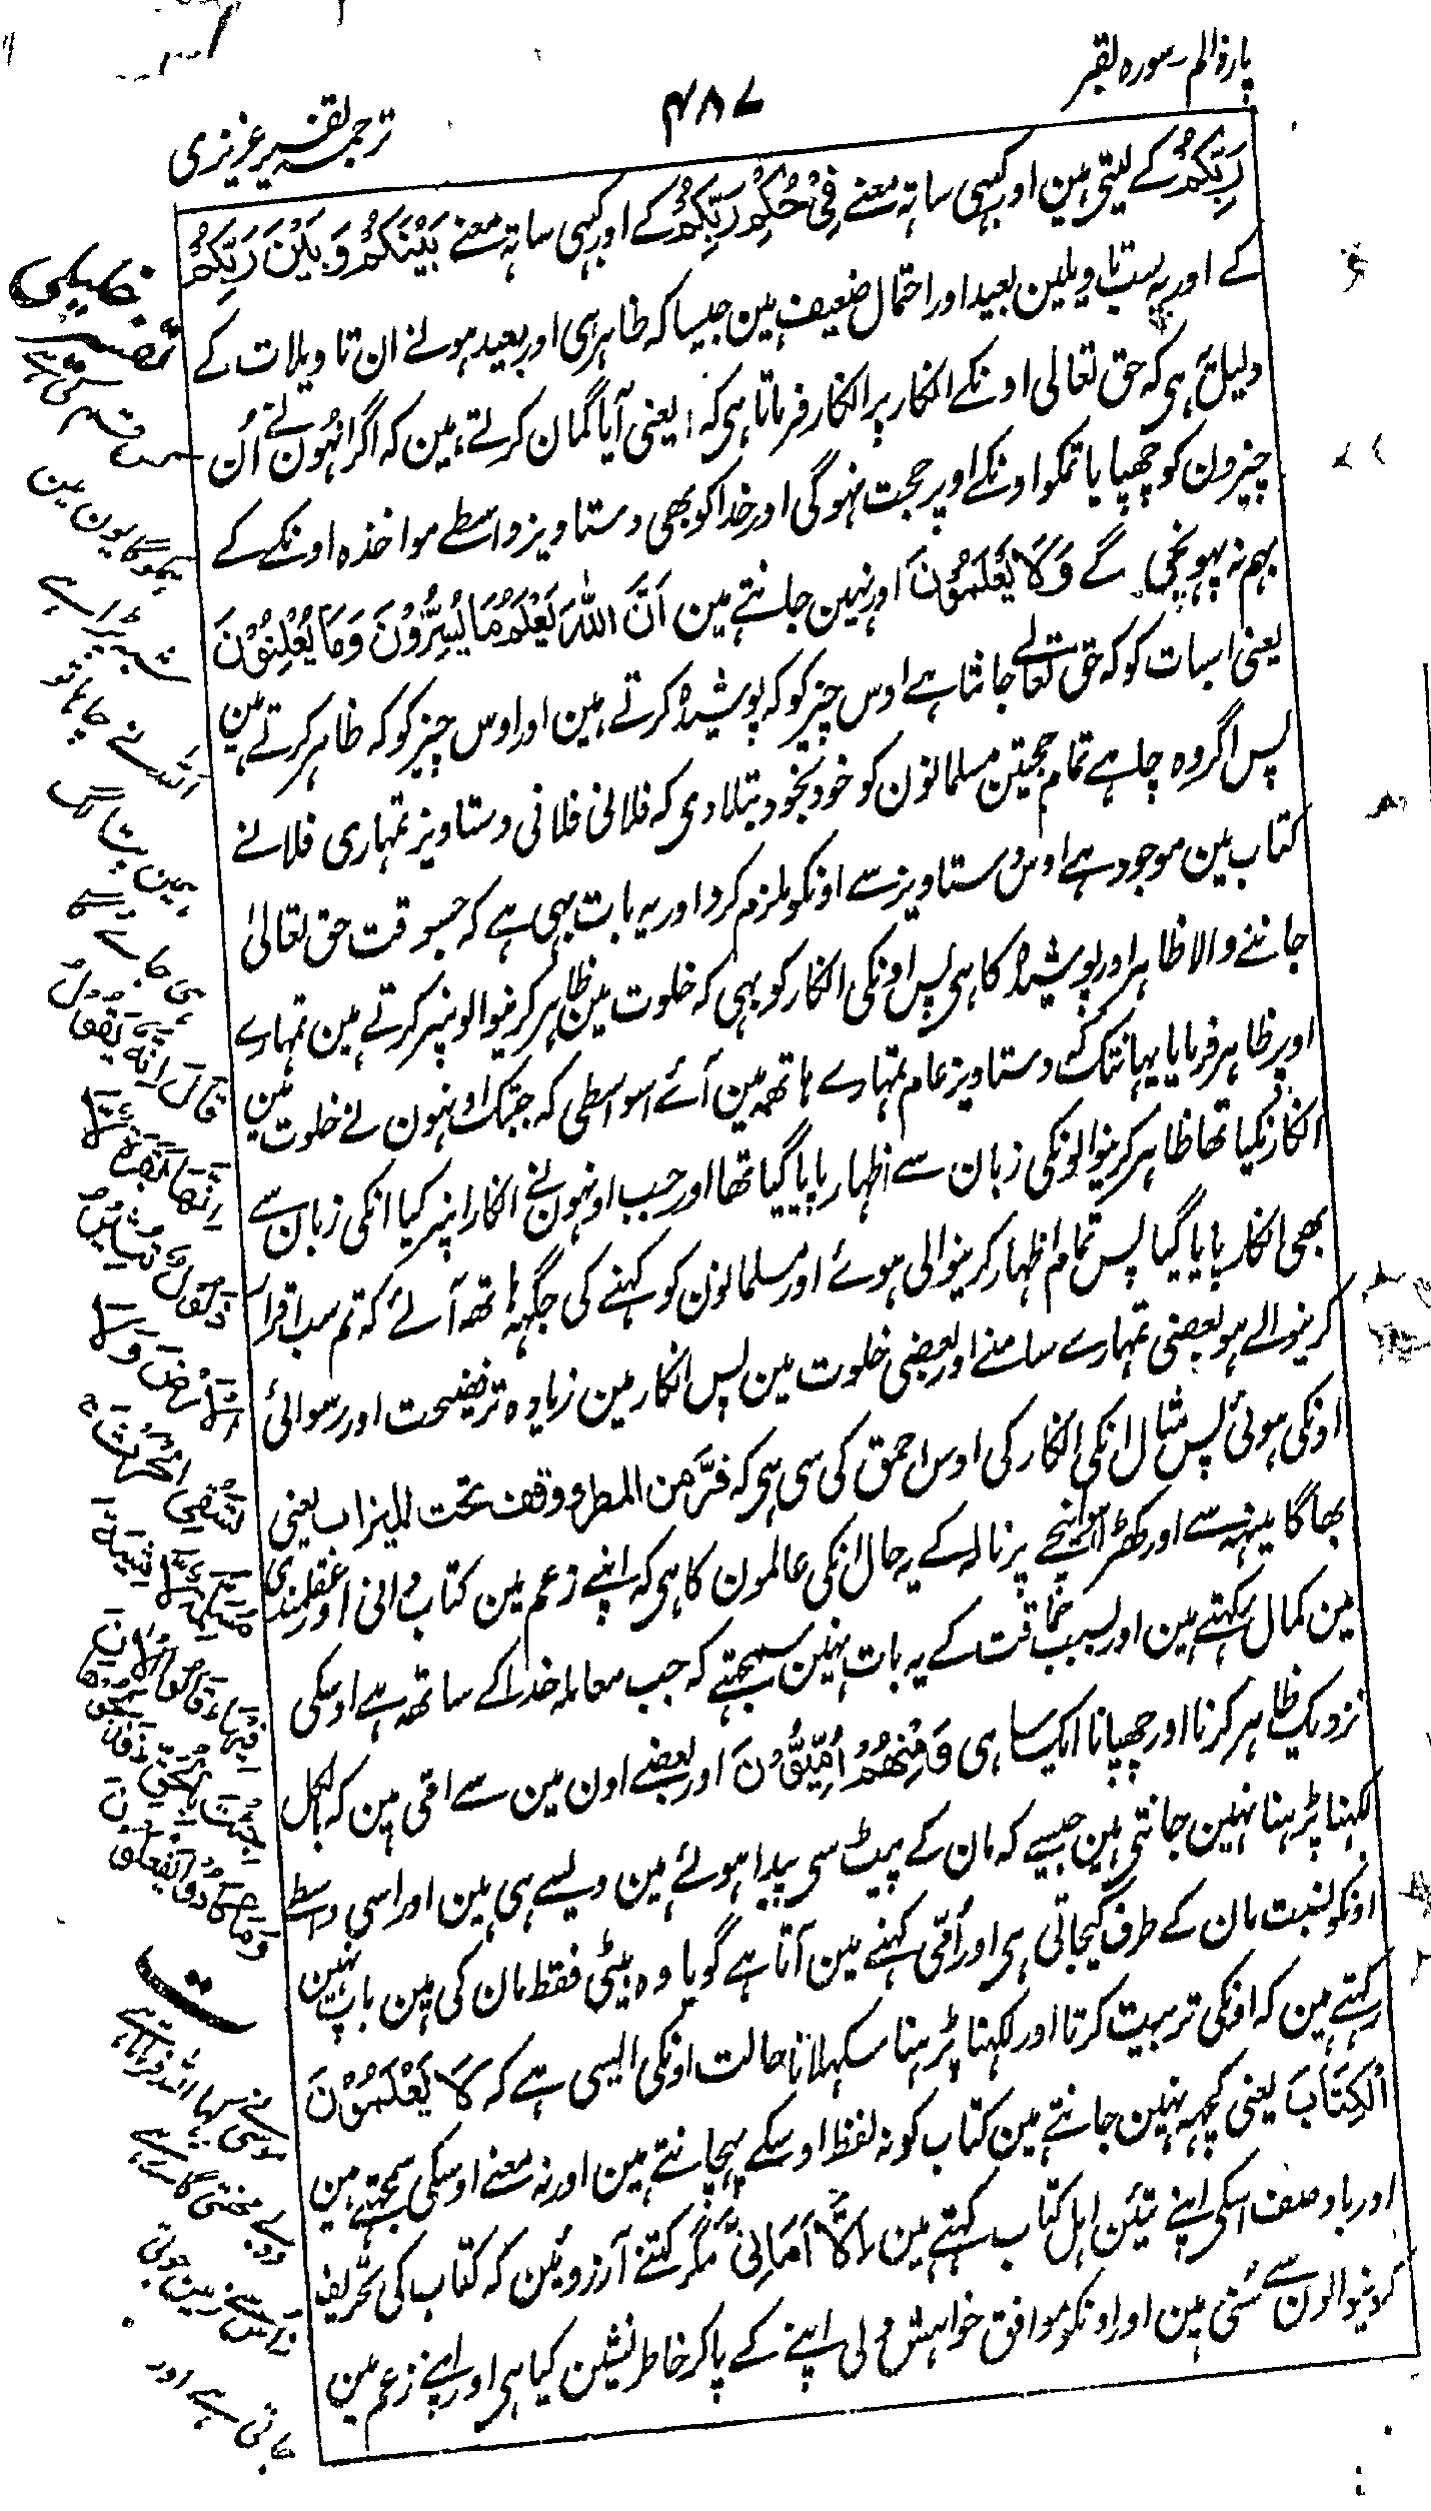 پارۂ الم سورہ بقر
۴۸۷
ترجمہ تفسیر عزیزی
رَبِّكُمْ کے لیتی ہین اور کبہی ساتہ معنے فِیْ حُكْمِ رَبِّكُمْ کے اور کبہی ساتہ معنے بَيْنَكُمْ وَبَيْنَ رَبِّكُمْ
کے اور یہ سب تاویلین بعید اور احتمال ضعیف ہین جیسا کہ ظاہر ہی اور بعید ہونے ان تاویلات کے
دلیل ہی کہ حق تعالی اونکے انکار پر انکار فرماتا ہی کہ یعنی آیا گمان کرتے ہین کہ اگر انہون نے اُن
چیزون کو چھپایا تمکو اونکے اوپر حجت نہوگی اور خدا کو بھی دستاویز واسطے مواخذہ اونکے کے
بہم نہ پہونچی گے وَلَا يَعْلَمُوْنَ اور نہین جانتے ہین اَنَّ اللهَ يَعْلَمُ مَا يُسِرُّوْنَ وَمَا يُعْلِنُوْنَ
یعنی اسبات کو کہ حق تعالے جانتا ہے اوس چیز کو کہ پوشیدہ کرتے ہین اور اوس چیز کو کہ ظاہر کرتے ہین
پس اگر وہ چاہے تمام حجتین مسلمانون کو خود بخود بتلا دی کہ فلانی فلانی دستاویز تمہاری فلانے
کتاب مین موجود ہے اوس دستاویز سے اونکو ملزم کرو اور یہ بات بہی ہے کہ جسوقت حق تعالیٰ
جاننے والا ظاہر اور پوشیدہ کا ہی پس اونکی انکار کو بہی کہ خلوت مین ظاہر کرنیوالونپر کرتے ہین تمہارے
اوپر ظاہر فرمایا یہانتک کہ دستاویز عام تمہارے ہاتھ مین آئے اسواسطی کہ جبتک اونہون نے خلوت مین
انکار نکیا تھا ظاہر کرنیوالونکی زبان سے اظہار پایا گیا تھا اور جب اونہون نے انکار اپنر کیا انکی زبان سے
بھی انکار پایا گیا پس تمام اظہار کرنیوالی ہوئے اور مسلمانون کو کہنے کی جگہہ ہاتھ آئے کہ تم سب اقرار
کرنیوالے ہو بعضی تمہارے سامنے اور بعضی خلوت مین پس انکار مین زیادہ تر فضیحت اور رسوائی
اونکی ہوئی پس مثال انکی انکار کی اوس احمق کی سی ہی کہ فَرَّ من المطر ووقف تحت المیزاب یعنی
بھاگا مینہہ سے اور کھڑا ہوا نیچے پرنالہ کے یہ حال انکی عالمون کا ہی کہ اپنے زعم مین کتاب دانی اور عقلمندی
مین کمال رکھتے ہین اور بسبب حماقت کے یہ بات نہین سمجھتے کہ جب معاملہ خدا کے ساتھ ہے اوسکی
نزدیک ظاہر کرنا اور چھپانا ایک سا ہی وَمِنْهُمْ اُمِّيُّوْنَ اور بعضے اون مین سے امّی ہین کہ بالکل
لکہنا پڑہنا نہین جانتی ہین جیسے کہ مان کے پیٹ سی پیدا ہوئے ہین ویسے ہی ہین اور اسی واسطے
اونکو نسبت مان کے طرف کیجاتی ہی اور اُمّی کہنے مین آتا ہے گویا وہ بیٹی فقط مان کی ہین باپ نہین
رکہتے ہین کہ اونکی تربیت کرتا اور لکہنا پڑہنا سکہلاتا حالت اونکی ایسی ہے کہ لَا يَعْلَمُوْنَ
الْكِتَابَ یعنی کچہہ نہین جانتے ہین کتاب کو نہ لفظ اوسکے پہچانتے ہین اور نہ معنے اوسکی سمجہتے ہین
اور باوصف اسکی اپنے تئین اہل کتاب کہتے ہین اِلَّا اَمَانِیَّ مگر کتنے آرزوئین کہ کتاب کی تحریف
کرنیوالون سے سُنی ہین اور اونکو موافق خواہش دلی اپنے کے پاکر خاطر نشین کیا ہی اور اپنے زعم مین
قَالَ اِنَّهٗ يَقُوْلُ
اِنَّهَا بَقَرَةٌ لَّا
ذَلُوْلٌ تُثِيْرُ
الْاَرْضَ وَلَا
تَسْقِي الْحَرْثَ
مُسَلَّمَةٌ لَّا شِيَةَ
فِيْهَا قَالُوا الْاٰنَ
جِئْتَ بِالْحَقِّ فَذَبَحُوْهَا
وَمَا كَادُوْا يَفْعَلُوْنَ